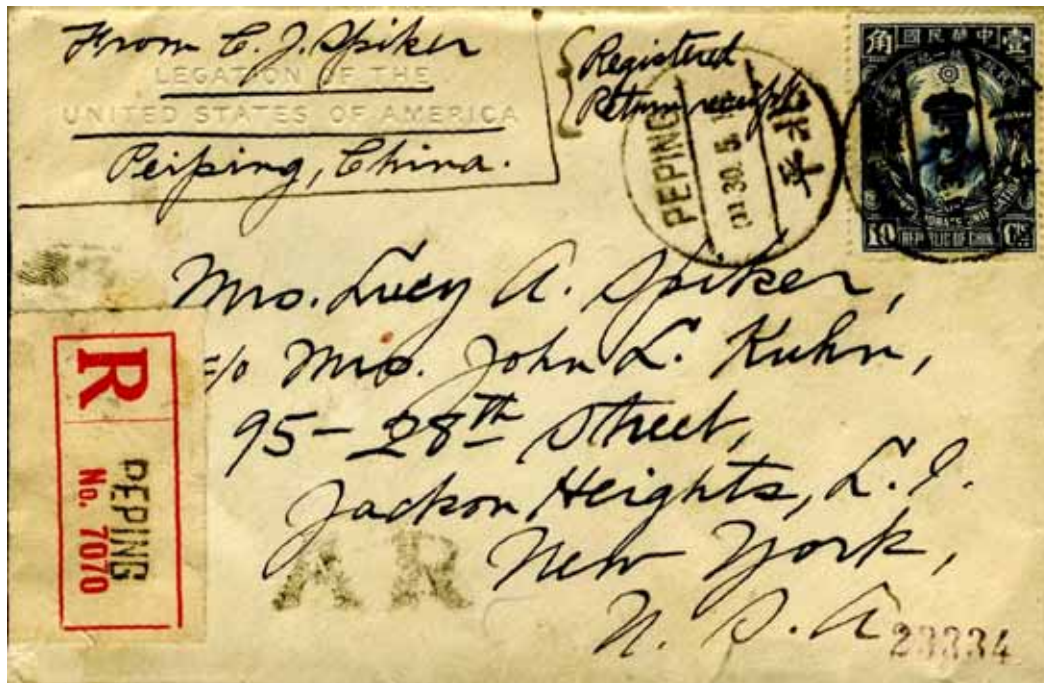 From C. J. Spiker
LEGATION OF THE
UNITED STATES OF AMERICA
Peiping, China.
Registered
Return receipt
角 國民華中 壹
10 REPUBLIC OF CHINA Cts
PEPING
30. 5.
北平
Mrs. Lucy A. Spiker,
c/o Mrs. John L. Kuhn,
95-28th Street,
Jackson Heights, L.I.
New York,
U.S.A
R
PEPING
No. 7070
AR
23334